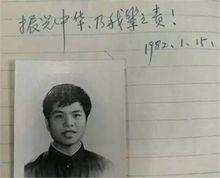 振兴中华，乃我辈之责！
1982.1.15.